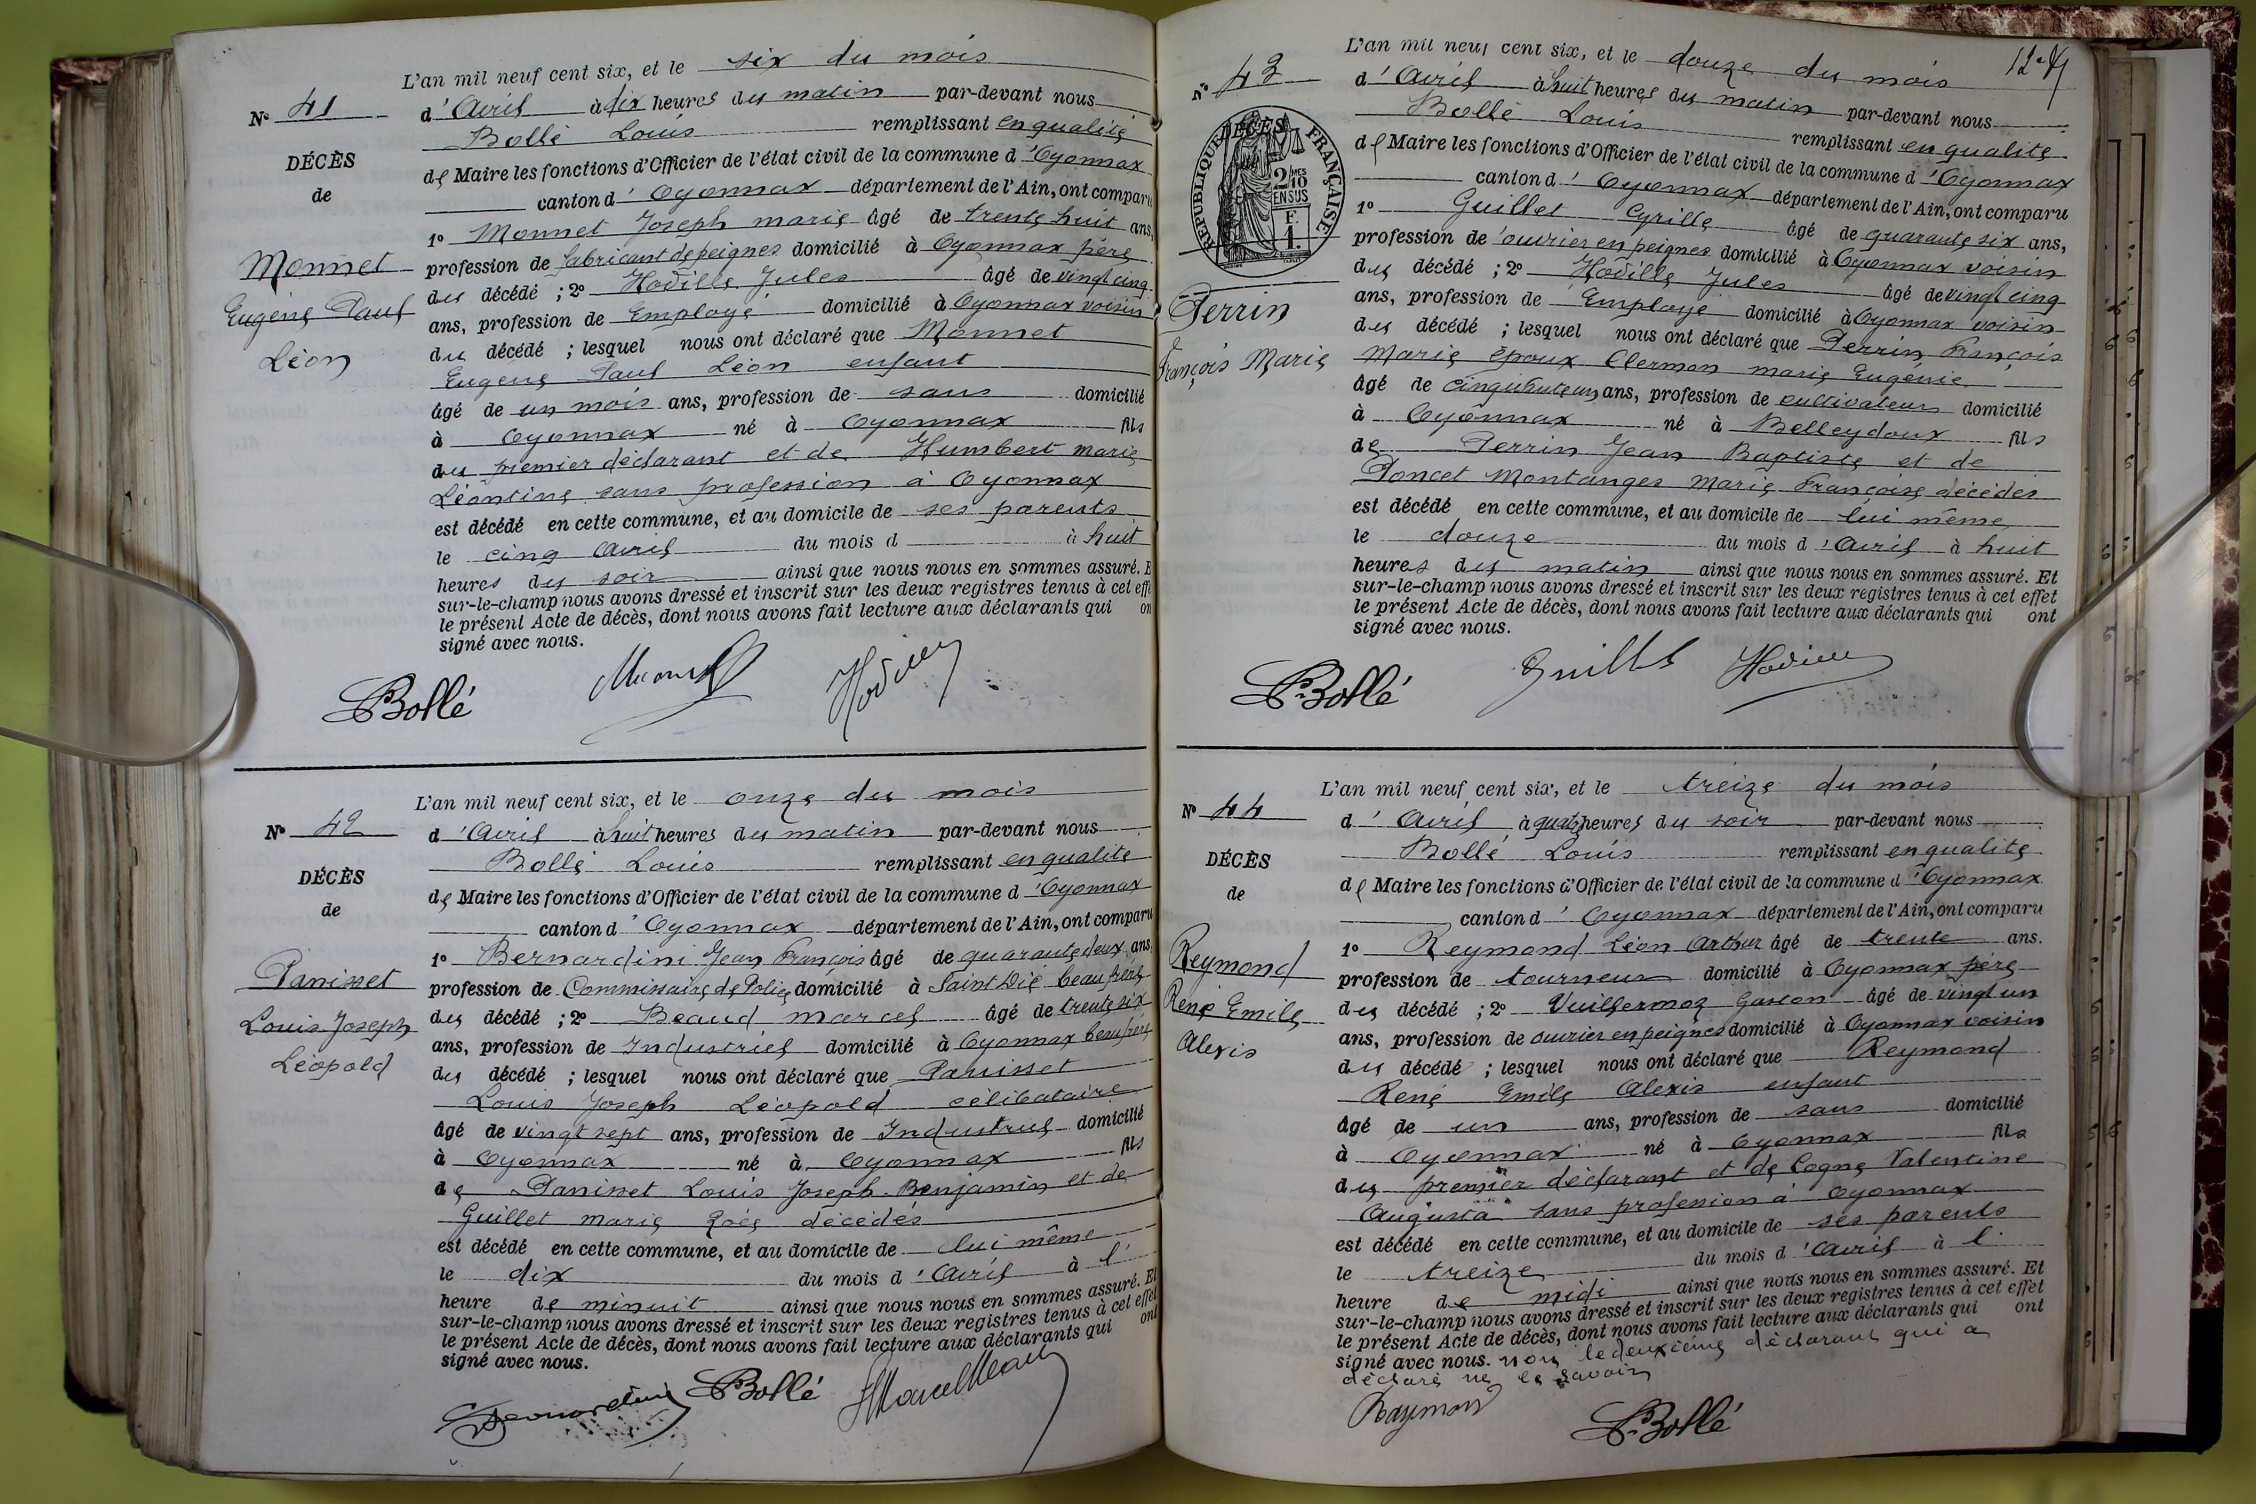 L'an mil neuf cent six, et le six du mois
N° 41
d'Avril à dix heures du matin par-devant nous
Bollé Louis remplissant en qualité
DÉCÈS
de Maire les fonctions d'Officier de l'état civil de la commune d'Oyonnax
de
canton d'Oyonnax département de l'Ain, ont comparu
1° Monnet Joseph marie âgé de trente huit ans,
Monnet
profession de fabricant de peignes domicilié à Oyonnax père
Eugène Paul
du décédé ; 2° Jules âgé de vingt cinq
Léon
ans, profession de Employé domicilié à Oyonnax voisin
du décédé ; lesquel nous ont déclaré que Monnet
Eugène Paul Léon enfant
âgé de un mois ans, profession de sans domicilié
à Oyonnax né à Oyonnax fils
du premier déclarant et de Humbert marie
Léontine sans profession à Oyonnax
est décédé en cette commune, et au domicile de ses parents
le cinq Avril du mois d à huit
heures du soir ainsi que nous nous en sommes assuré. E
sur-le-champ nous avons dressé et inscrit sur les deux registres tenus à cet effe
le présent Acte de décès, dont nous avons fait lecture aux déclarants qui on
signé avec nous.
Bollé
L'an mil neuf cent six, et le onze du mois
N° 42
d'Avril à huit heures du matin par-devant nous
Bollé Louis remplissant en qualité
DÉCÈS
de Maire les fonctions d'Officier de l'état civil de la commune d'Oyonnax
de
canton d'Oyonnax département de l'Ain, ont comparu
1° Bernardini Jean François âgé de quarante deux ans,
Panisset
profession de Commissaire de Police domicilié à Saint Dié beau frère
Louis Joseph
du décédé ; 2° Beaud Marcel âgé de trente six
Léopold
ans, profession de Industriel domicilié à Oyonnax beau frère
du décédé ; lesquel nous ont déclaré que Panisset
Louis Joseph Léopold célibataire
âgé de vingt sept ans, profession de Industriel domicilié
à Oyonnax né à Oyonnax fils
de Panisset Louis Joseph Benjamin et de
Guillet marie Zoée décédés
est décédé en cette commune, et au domicile de lui même
le dix du mois d'Avril à l'
heure de minuit ainsi que nous nous en sommes assuré. Et
sur-le-champ nous avons dressé et inscrit sur les deux registres tenus à cet effet
le présent Acte de décès, dont nous avons fait lecture aux déclarants qui ont
signé avec nous.
Bollé
L'an mil neuf cent six, et le douze du mois
N° 43
d'Avril à huit heures du matin par-devant nous
Bollé Louis remplissant en qualité
RÉPUBLIQUE FRANÇAISE
DÉCÈS
2/10MES
EN SUS
F.
1.
de Maire les fonctions d'Officier de l'état civil de la commune d'Oyonnax
canton d'Oyonnax département de l'Ain, ont comparu
1° Guillet Cyrille âgé de quarante six ans,
profession de ouvrier en peignes domicilié à Oyonnax voisin
du décédé ; 2° Jules âgé de vingt cinq
Perrin
ans, profession de Employé domicilié à Oyonnax voisin
du décédé ; lesquel nous ont déclaré que Perrin François
François Marie
Marie époux Clermon marie Eugénie
âgé de ans, profession de cultivateur domicilié
à Oyonnax né à Belleydoux fils
de Perrin Jean Baptiste et de
Poncet Montanges Marie Françoise décédés
est décédé en cette commune, et au domicile de lui même
le douze du mois d'Avril à huit
heures du matin ainsi que nous nous en sommes assuré. Et
sur-le-champ nous avons dressé et inscrit sur les deux registres tenus à cet effet
le présent Acte de décès, dont nous avons fait lecture aux déclarants qui ont
signé avec nous.
Bollé
L'an mil neuf cent six, et le treize du mois
N° 44
d'Avril à quatre heures du soir par-devant nous
Bollé Louis remplissant en qualité
DÉCÈS
de Maire les fonctions d'Officier de l'état civil de la commune d'Oyonnax
de
canton d'Oyonnax département de l'Ain, ont comparu
1° Reymond Léon Arthur âgé de trente ans.
Reymond
profession de tourneur domicilié à Oyonnax père
René Emile
du décédé ; 2° Vuillermoz Gaston âgé de vingt un
Alexis
ans, profession de ouvrier en peignes domicilié à Oyonnax voisin
du décédé ; lesquel nous ont déclaré que Reymond
René Emile Alexis enfant
âgé de un ans, profession de sans domicilié
à Oyonnax né à Oyonnax fils
du premier déclarant et de Cogne Valentine
Augusta sans profession à Oyonnax
est décédé en cette commune, et au domicile de ses parents
le treize du mois d'Avril à l'
heure de midi ainsi que nous nous en sommes assuré. Et
sur-le-champ nous avons dressé et inscrit sur les deux registres tenus à cet effet
le présent Acte de décès, dont nous avons fait lecture aux déclarants qui ont
signé avec nous. non le deuxième déclarant qui a
déclaré ne le savoir
Raymond
Bollé